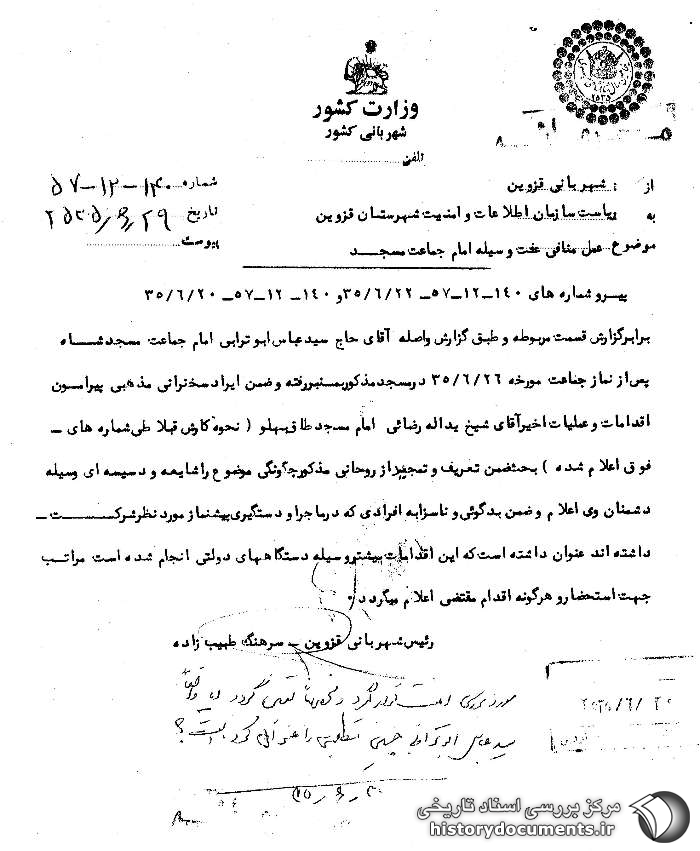 وزارت کشور
شهربانی کشور
تلفن
۲۵۳۵
از : شهربانی قزوین
شماره ۱۴۰-۱۲-۵۷
به ریاست سازمان اطلاعات و امنیت شهرستان قزوین
تاریخ ۲۵۳۵/۶/۲۹
موضوع عمل منافی عفت وسیله امام جماعت مسجد
پیوست
پیرو شماره های ۱۴۰-۱۲-۵۷- ۳۵/۶/۲۲ و ۱۴۰-۱۲-۵۷- ۳۵/۶/۲۰
برابر گزارش قسمت مربوطه و طبق گزارش واصله آقای حاج سید عباس ابوترابی امام جماعت مسجد شاه
پس از نماز جماعت مورخه ۳۵/۶/۲۶ در مسجد مذکور بمنبر رفته و ضمن ایراد سخنرانی مذهبی پیرامون
اقدامات و عملیات اخیر آقای شیخ یداله رضائی امام مسجد طاق پهلو ( نحوه کارش قبلا طی شماره های -
فوق اعلام شده ) بحث ضمن تعریف و تمجید از روحانی مذکور چگونگی موضوع را شایعه و دسیسه ای وسیله
دشمنان وی اعلام و ضمن بدگوئی و ناسزا به افرادی که در ماجرا و دستگیری پیشنماز مورد نظر شرکت -
داشته اند عنوان داشته است که این اقدامات بیشتر وسیله دستگاههای دولتی انجام شده است مراتب
جهت استحضار و هرگونه اقدام مقتضی اعلام میگردد .
رئیس شهربانی قزوین - سرهنگ طبیب زاده
مورد بررسی قرار گیرد و تعیین گردد که واقعاً
سید عباس ابوترابی چنین مطلبی را عنوان کرده است؟
مرکز بررسی اسناد تاریخی
historydocuments.ir